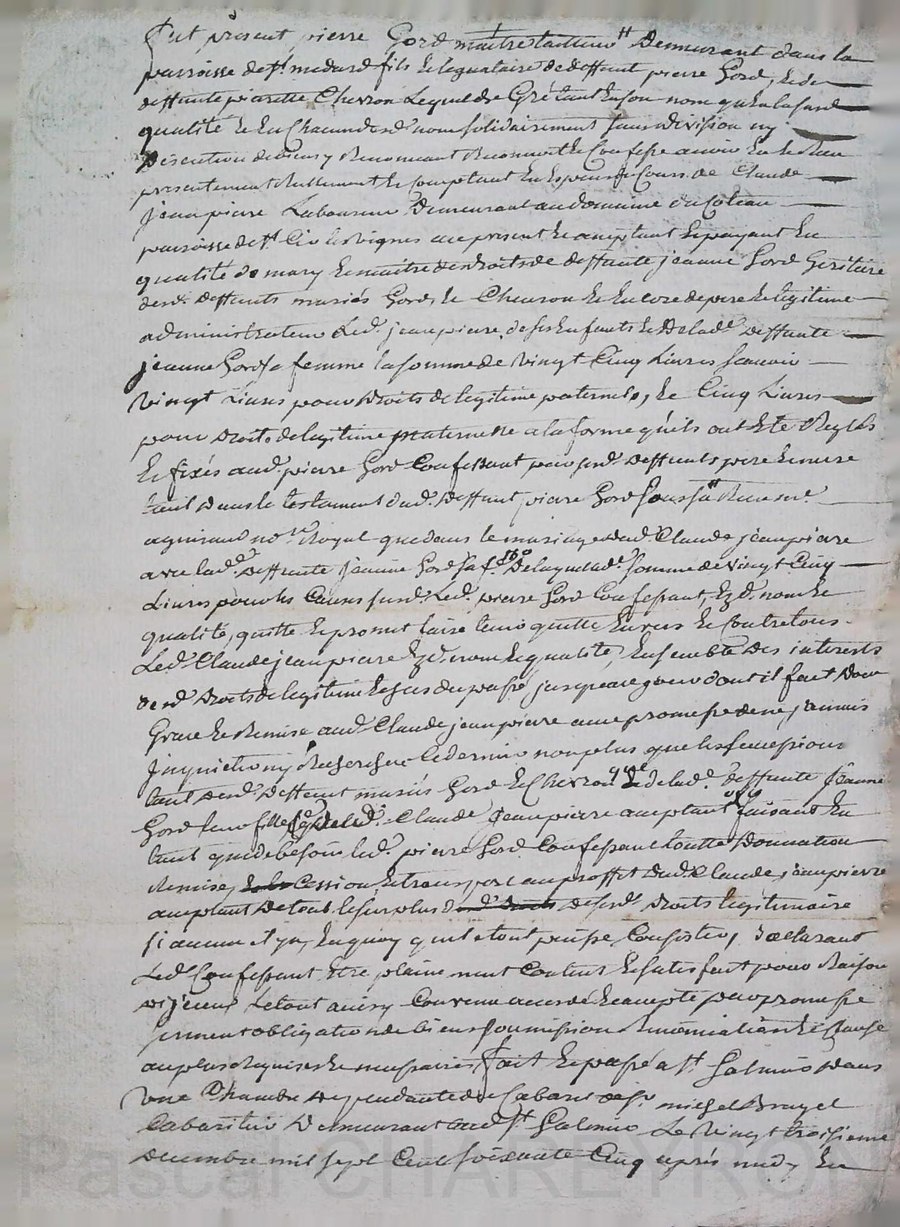 fut présent, pierre Gord maitre tailleur Demeurant dans la
parroisse de st. medard fils et legataire de deffunt pierre Gord, et de
deffunte pierrette Chevron lequel de Gré tant en son nom qu'en la susd
qualité et en Chacun desd. nom solidairement sans division ny
Discution de biens y Renonceant Reconnoit et Confesse avoir eu et Receu
presentement Reellement et Comptant en Especes de Cours de Claude
Jeanpierre Laboureur Demeurant au domaine du Coteau
parroisse de st. les vignes icy present et acceptant et payant en
qualité de mary et maitre des Droits de deffunte jeanne Gord heritiere
desd. deffunts mariés Gord, et Chevron et Encore de pere et legitime
administrateur Led. jeanpierre, de ses Enfants et de lad. deffunte
jeanne Gord sa femme la somme de vingt Cinq Livres sçavoir
vingt Livres pour Droits de legitime paternels, et Cinq Livres
pour Droits de legitime maternelle a la forme qu'ils ont Eté Reglés
et fixés aud. pierre Gord Confessant par sesd. deffunts pere et mere
tant dans le testament dud. deffunt pierre Gord Reçu me.
nore. Royal que dans le mariage dud. Claude jeanpierre
avec lad. deffunte jeanne Gord sa f. De laquelle d. somme de vingt Cinq
Livres pour les Causes susd. Led. pierre Gord Confessant, Ezd. nom et
qualité, quitte et promet faire tenir quitte Envers et Contre tous
Led. Claude jeanpierre Ezd. nom et qualité, Ensemble des interests
desd. Droits de legitime Echus du passé jusqu'a ce jour dont il fait Don
Grace et Remise aud. Claude jeanpierre avec promesse de ne jamais
Inquietter ny Rechercher ce dernier non plus que les successions
tant desd. deffunt mariés Gord et Chevron que de lad. deffunte Jeanne
Gord leur fille led. Claude Jeanpierre acceptant faisant En
tant que de besoin led. pierre Gord Confessant toutte Donnation
Remise, Cession et transport au proffit dud. Claude, jeanpierre
acceptant de tout le surplus de sesd. Droits legitimaire
si aucun il y a, En quoy qu'il etant puisse Consister, Declarant
Led. Confessant Etre plainement Content et satisfait pour Raison
D'Iceux Le tout ainsy Convenu accordé et accepté par promesse
serment obligation de biens soumission Renonciation et Clause
au plus Requises et necessaires fait et passé a st. Galmier dans
une Chambre Dependante du Cabaret de sr. michel Bruyel
Cabaretier Demeurant aud. st. Galmier Le vingt troisieme
Decembre mil sept Cent soixante Cinq apres midy En
Pascal CHAREYRON